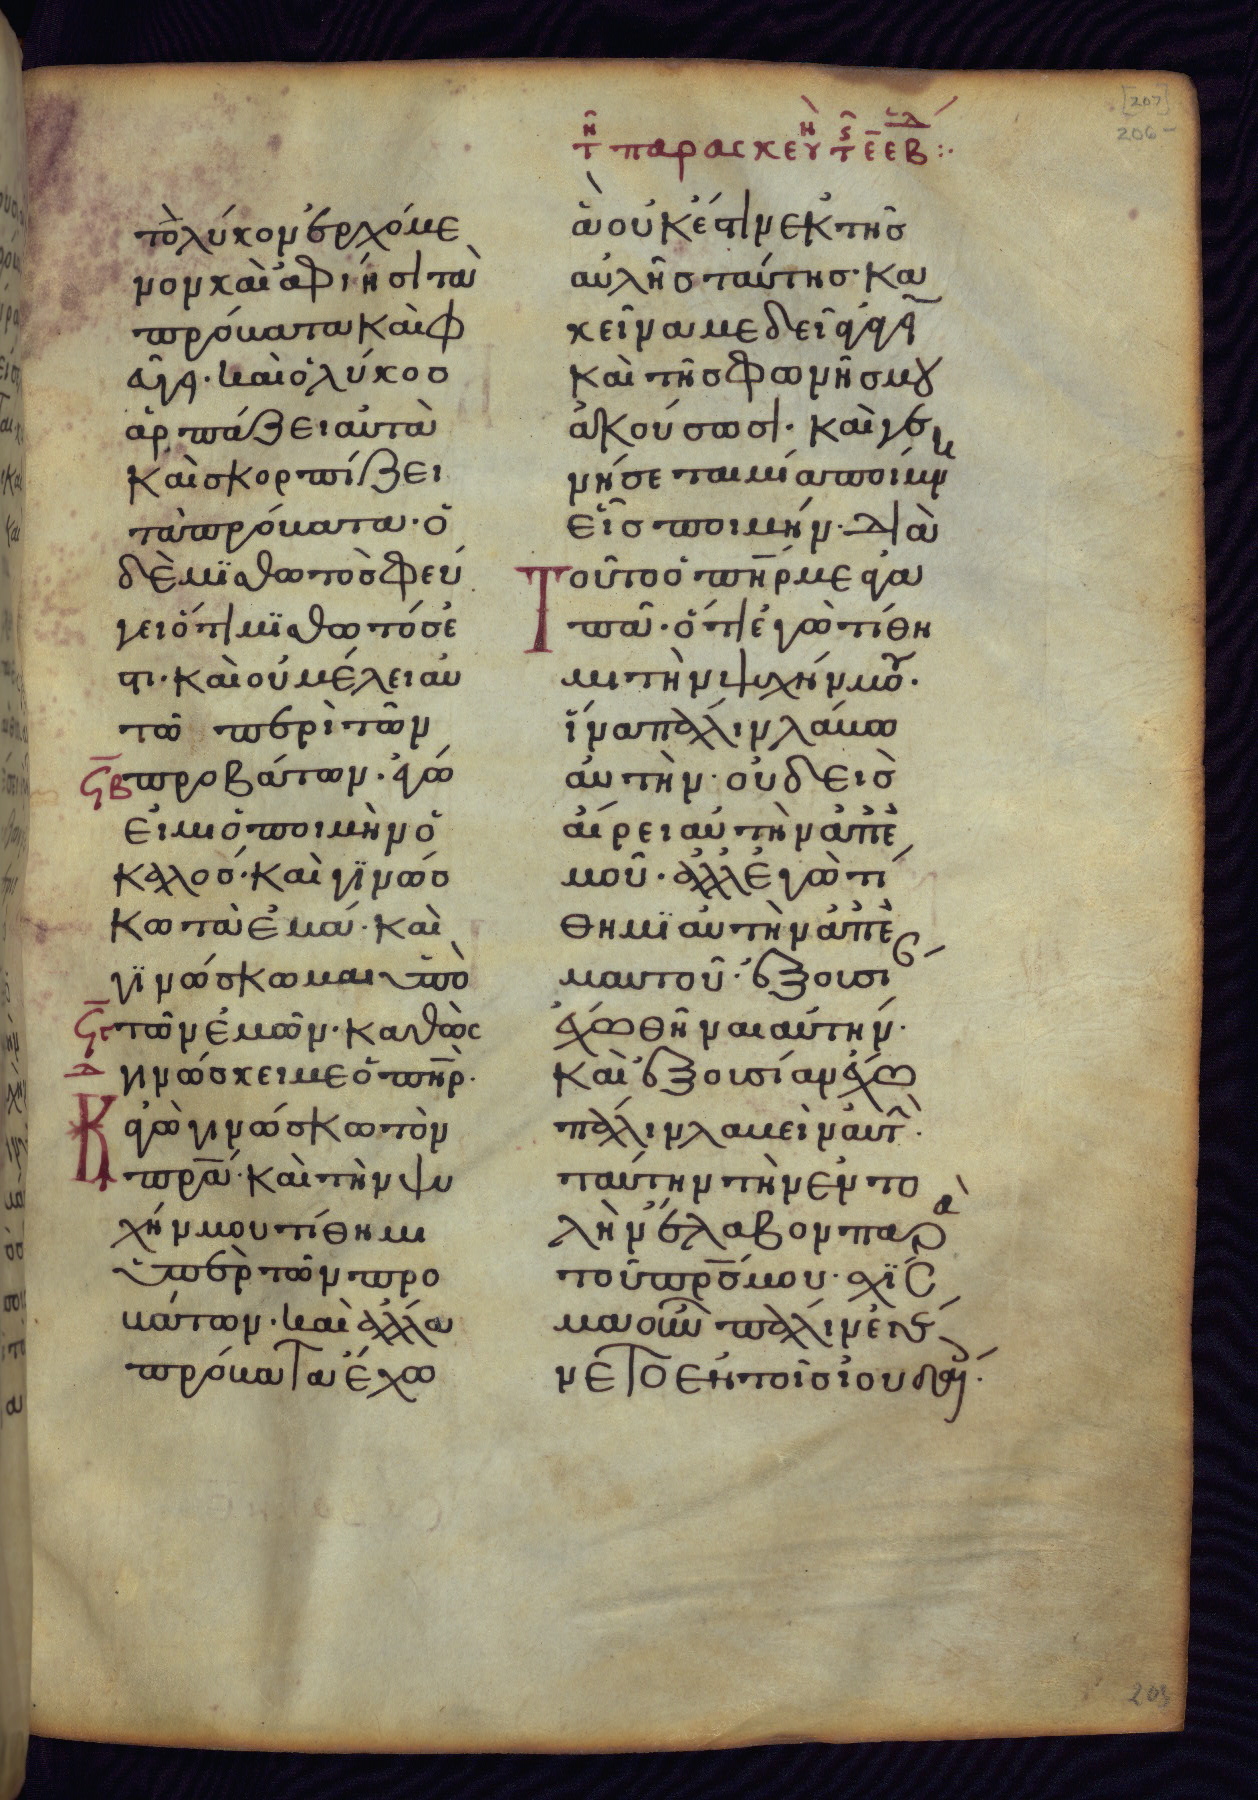 [207]
206
τῆ παρασκευῆ τς ε εβδ
τὸ λύκον ἐρχόμε
νον καὶ ἀφίησι τὰ
πρόβατα καὶ φ
εύγει· καὶ ὁ λύκος
ἁρπάζει αὐτὰ
καὶ σκορπίζει
τὰ πρόβατα· ὁ
δὲ μϊσθωτὸς φεύ
γει ὅτι μϊσθωτός ἐ
στι· καὶ οὐ μέλει αυ
τῶ περὶ τῶν
προβάτων· ἐγώ
εἰμι ὁ ποιμὴν ὁ
καλός· καὶ γϊνώσ
κω τὰ ἐμά· καὶ
γϊνώσκωμαι ὑπὸ
τῶν ἐμῶν· καθὼς
γινώσκει με ὁ πηρ·
Κἀγὼ γινώσκω τὸν
πρα· καὶ τὴν ψυ
χήν μου τίθημι
ὑπὲρ τῶν προ
βάτων· καὶ ἄλλα
πρόβατα ἔχω
ἃ οὐκ ἔστιν ἐκ τῆς
αὐλῆς ταύτης· κα
κεῖνα με δεῖ ἀγαγεῖν
καὶ τῆς φωνῆς μου
ἀκούσωσι· καὶ γε
νήσεται μία ποίμν
εἷς ποιμήν· Διὰ
Τοῦτο ὁ πηρ με ἀγα
πᾶ· ὅτι ἐγὼ τίθη
μι τὴν ψυχήν μου·
ἵνα πάλιν λάβω
αὐτὴν· οὐδεὶς
αἴρει αὐτὴν ἀπε
μοῦ· ἀλλ' ἐγὼ τί
θημϊ αὐτὴν ἀπε
μαυτοῦ· ἐξουσί
ἔχω θῆναι αὐτήν·
καὶ ἐξουσίαν ἔχω
πάλιν λαβεὶν αὐτ·
ταύτην τὴν ἐντο
λὴν ἔλαβον παρὰ
τοῦ πρσ μου· σχϊσ
μα οὖν πάλιν ἐγέ
νετο ἐν τοῖς ἰουδαί·
203